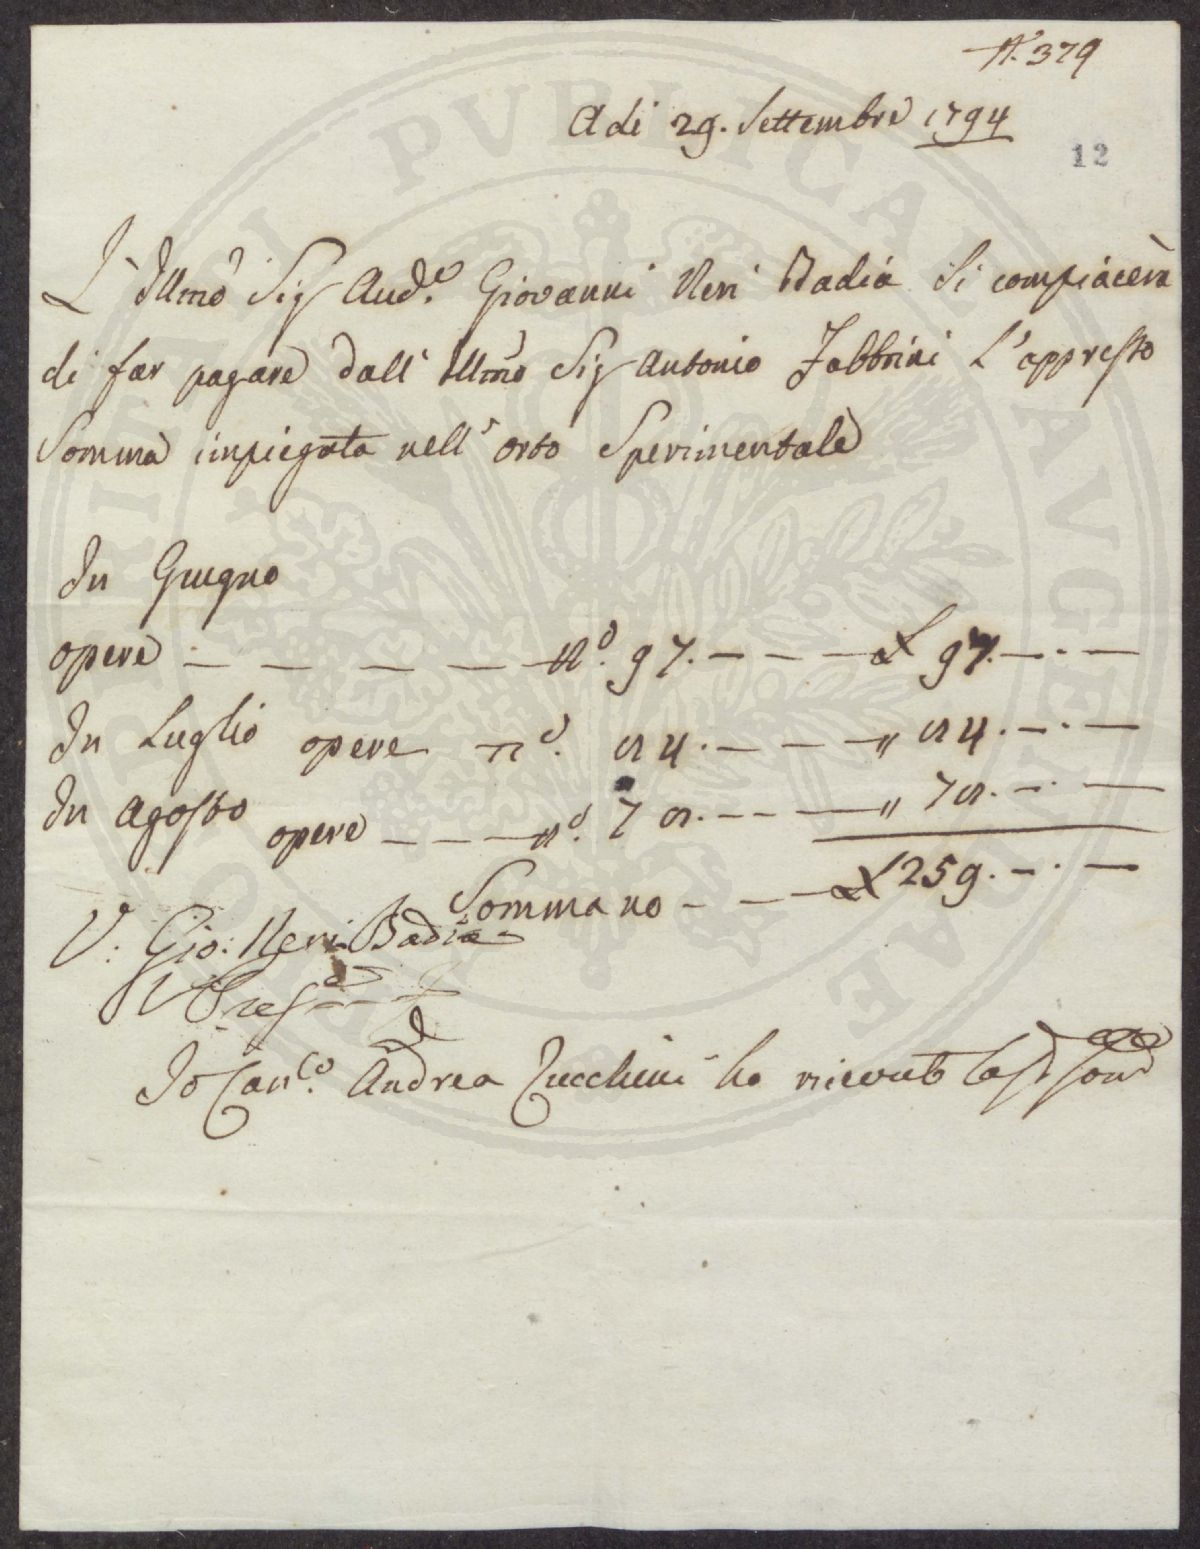 N.° 379
Adi 29. Settembre 1794
12
L'Illmo Sig Aud.e Giovanni Neri Badia Si compiacerà
di far pagare dall' Illmo Sig Antonio Fabbrini L'appresso
Somma impiegata nell' orto Sperimentale
In Giugno
opere — — — — N.° 97. — — — £ 97. — . —
In Luglio opere n.° 84. — — — " 84. — . —
In Agosto opere — — — n.° 78. — — — " 78. — . —
Sommano - — — £ 259. — . —
V: Gio: Neri Badia
V Pres.e
Io Can.co Andrea Zucchini ho ricevuto la Sd.a Som.a
PROSPERITATI PVBLICAE AVGENDAE